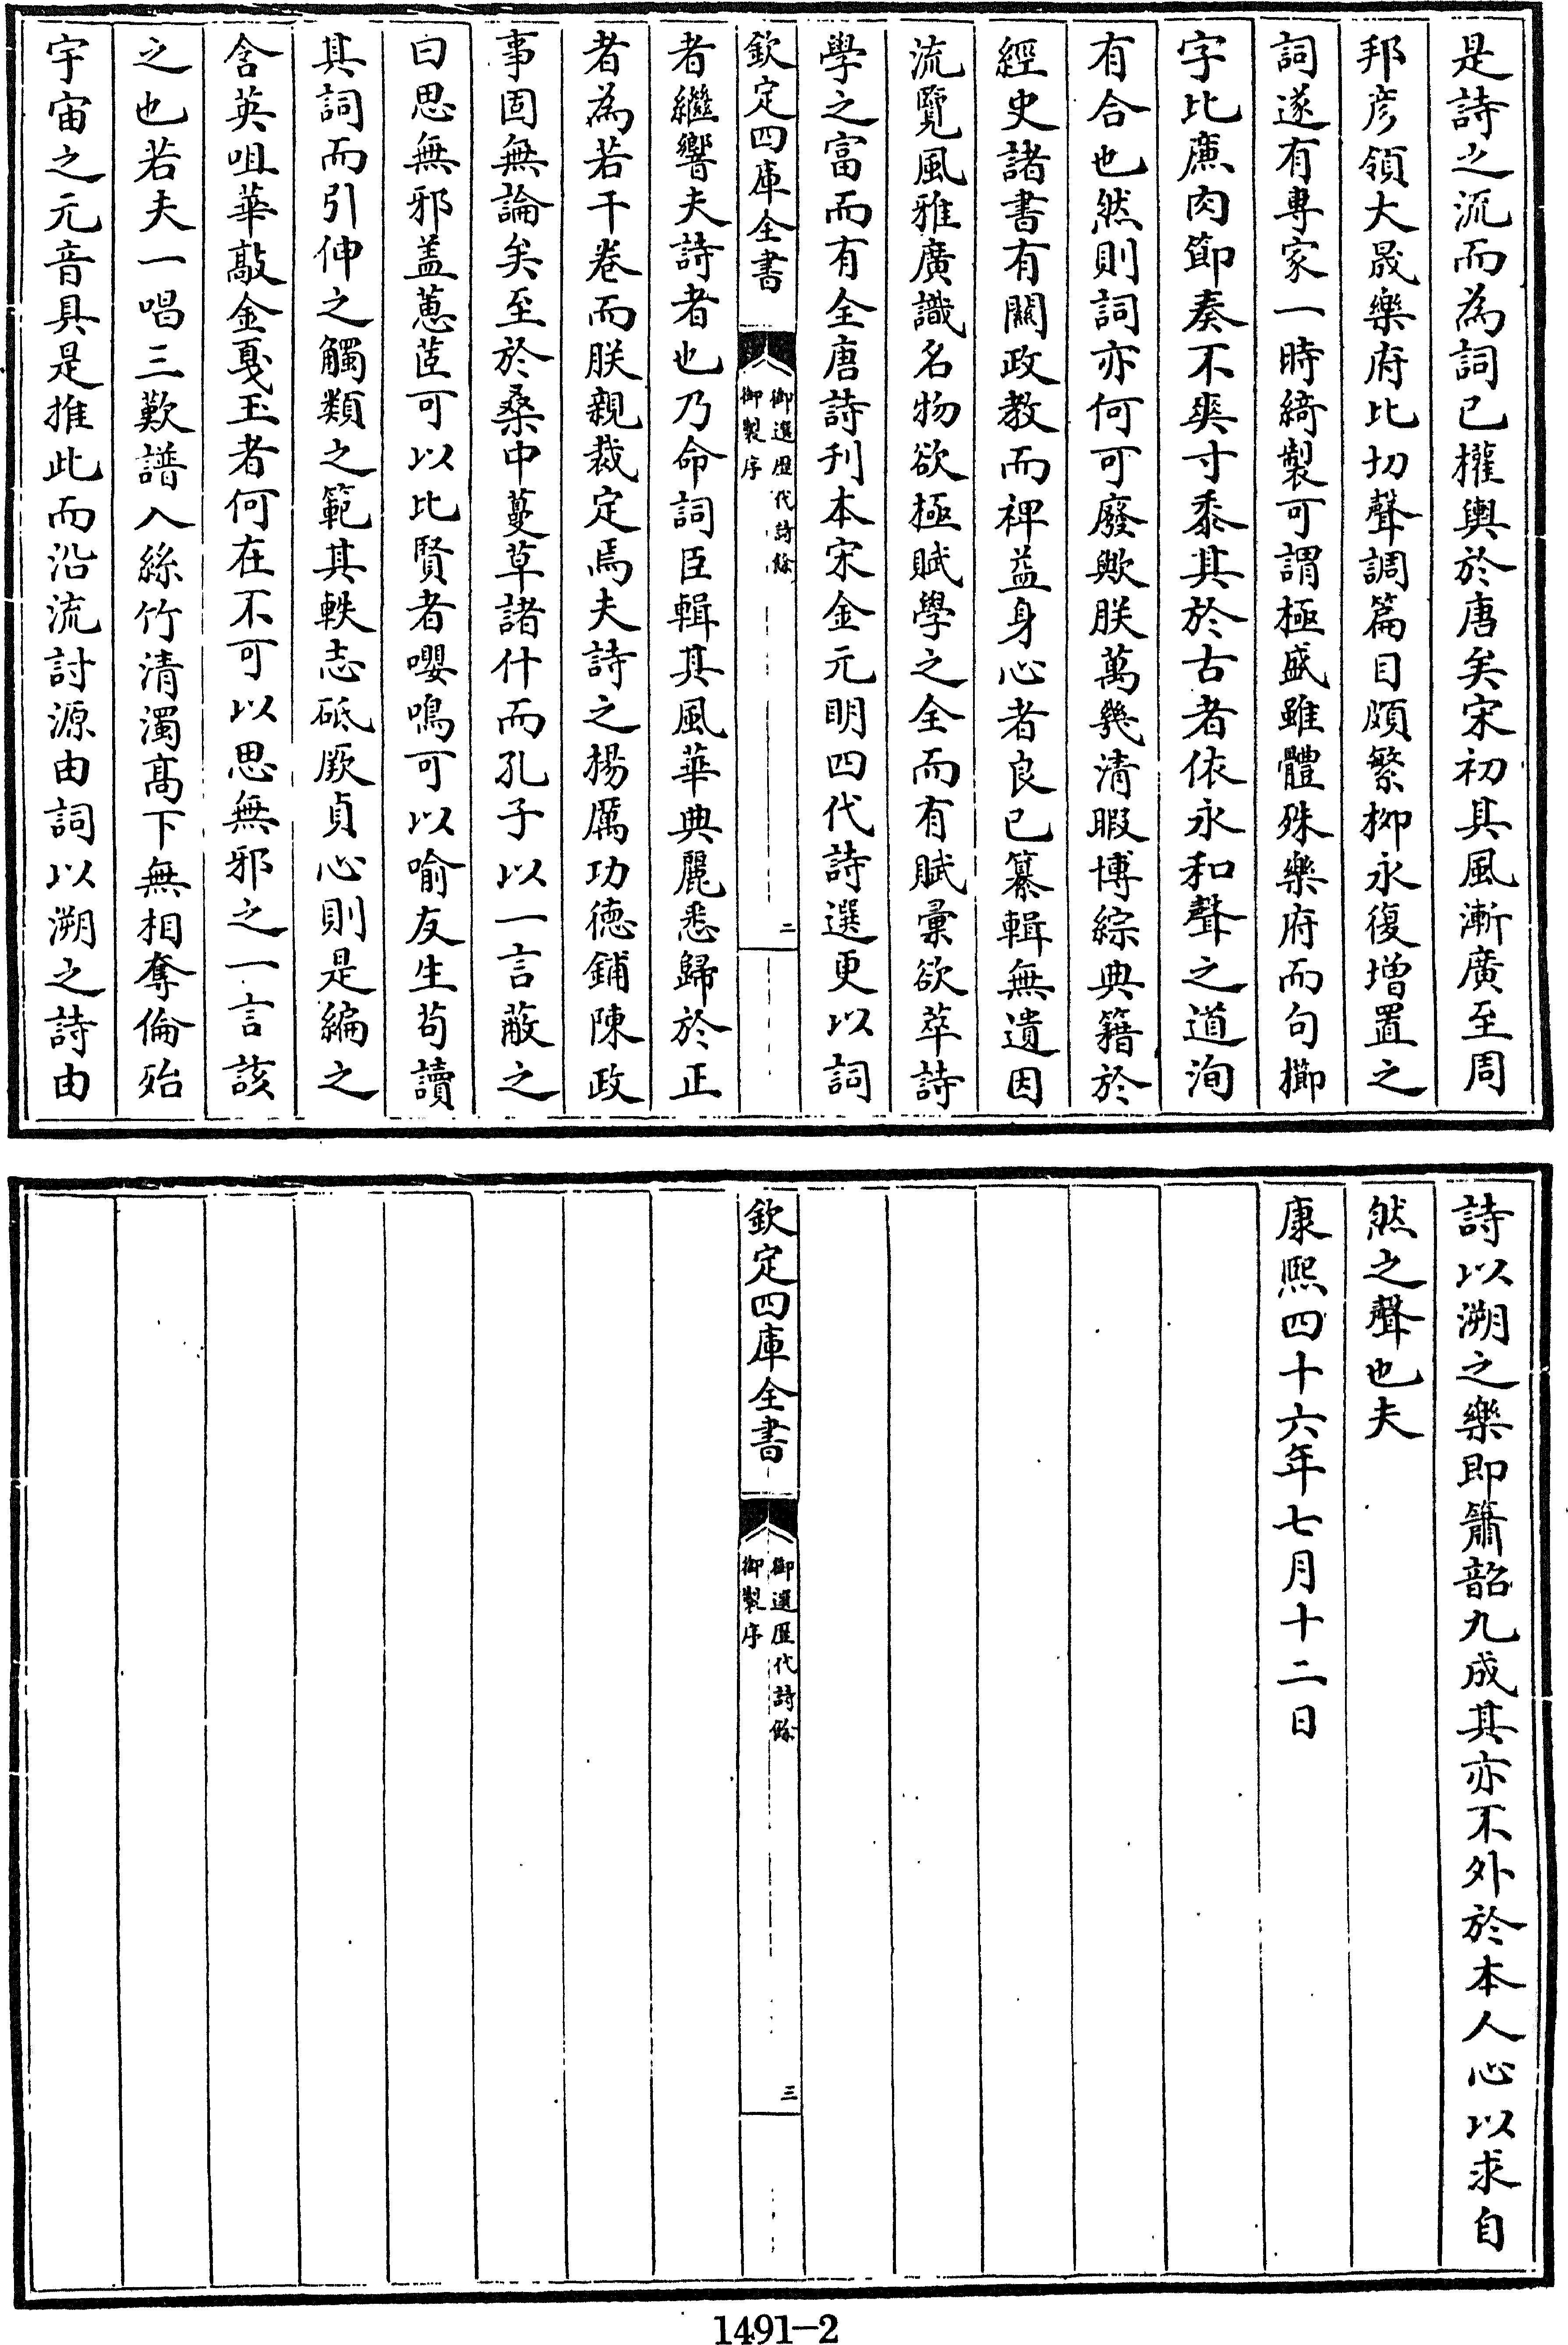 是詩之流而為詞已權輿於唐矣宋初其風漸廣至周
邦彦領大晟樂府比切聲調篇目頗繁柳永復増置之
詞遂有專家一時綺製可謂極盛雖體殊樂府而句櫛
字比廉肉節奏不爽寸黍其於古者依永和聲之道洵
有合也然則詞亦何可廢歟朕萬幾清暇博綜典籍於
經史諸書有關政教而裨益身心者良已纂輯無遺因
流覽風雅廣識名物欲極賦學之全而有賦彙欲萃詩
學之富而有全唐詩刋本宋金元明四代詩選更以詞
欽定四庫全書
御選歴代詩餘
御製序
二
者繼響夫詩者也乃命詞臣輯其風華典麗悉歸於正
者為若干卷而朕親裁定焉夫詩之揚厲功徳鋪陳政
事固無論矣至於桑中蔓草諸什而孔子以一言蔽之
曰思無邪盖蕙茝可以比賢者嚶鳴可以喻友生茍讀
其詞而引伸之觸類之範其軼志砥厥貞心則是編之
含英咀華敲金戛玉者何在不可以思無邪之一言該
之也若夫一唱三歎譜入絲竹清濁髙下無相奪倫殆
宇宙之元音具是推此而沿流討源由詞以溯之詩由
詩以溯之樂即簫韶九成其亦不外於本人心以求自
然之聲也夫
康熙四十六年七月十二日
欽定四庫全書
御選歴代詩餘
御製序
三
1491-2